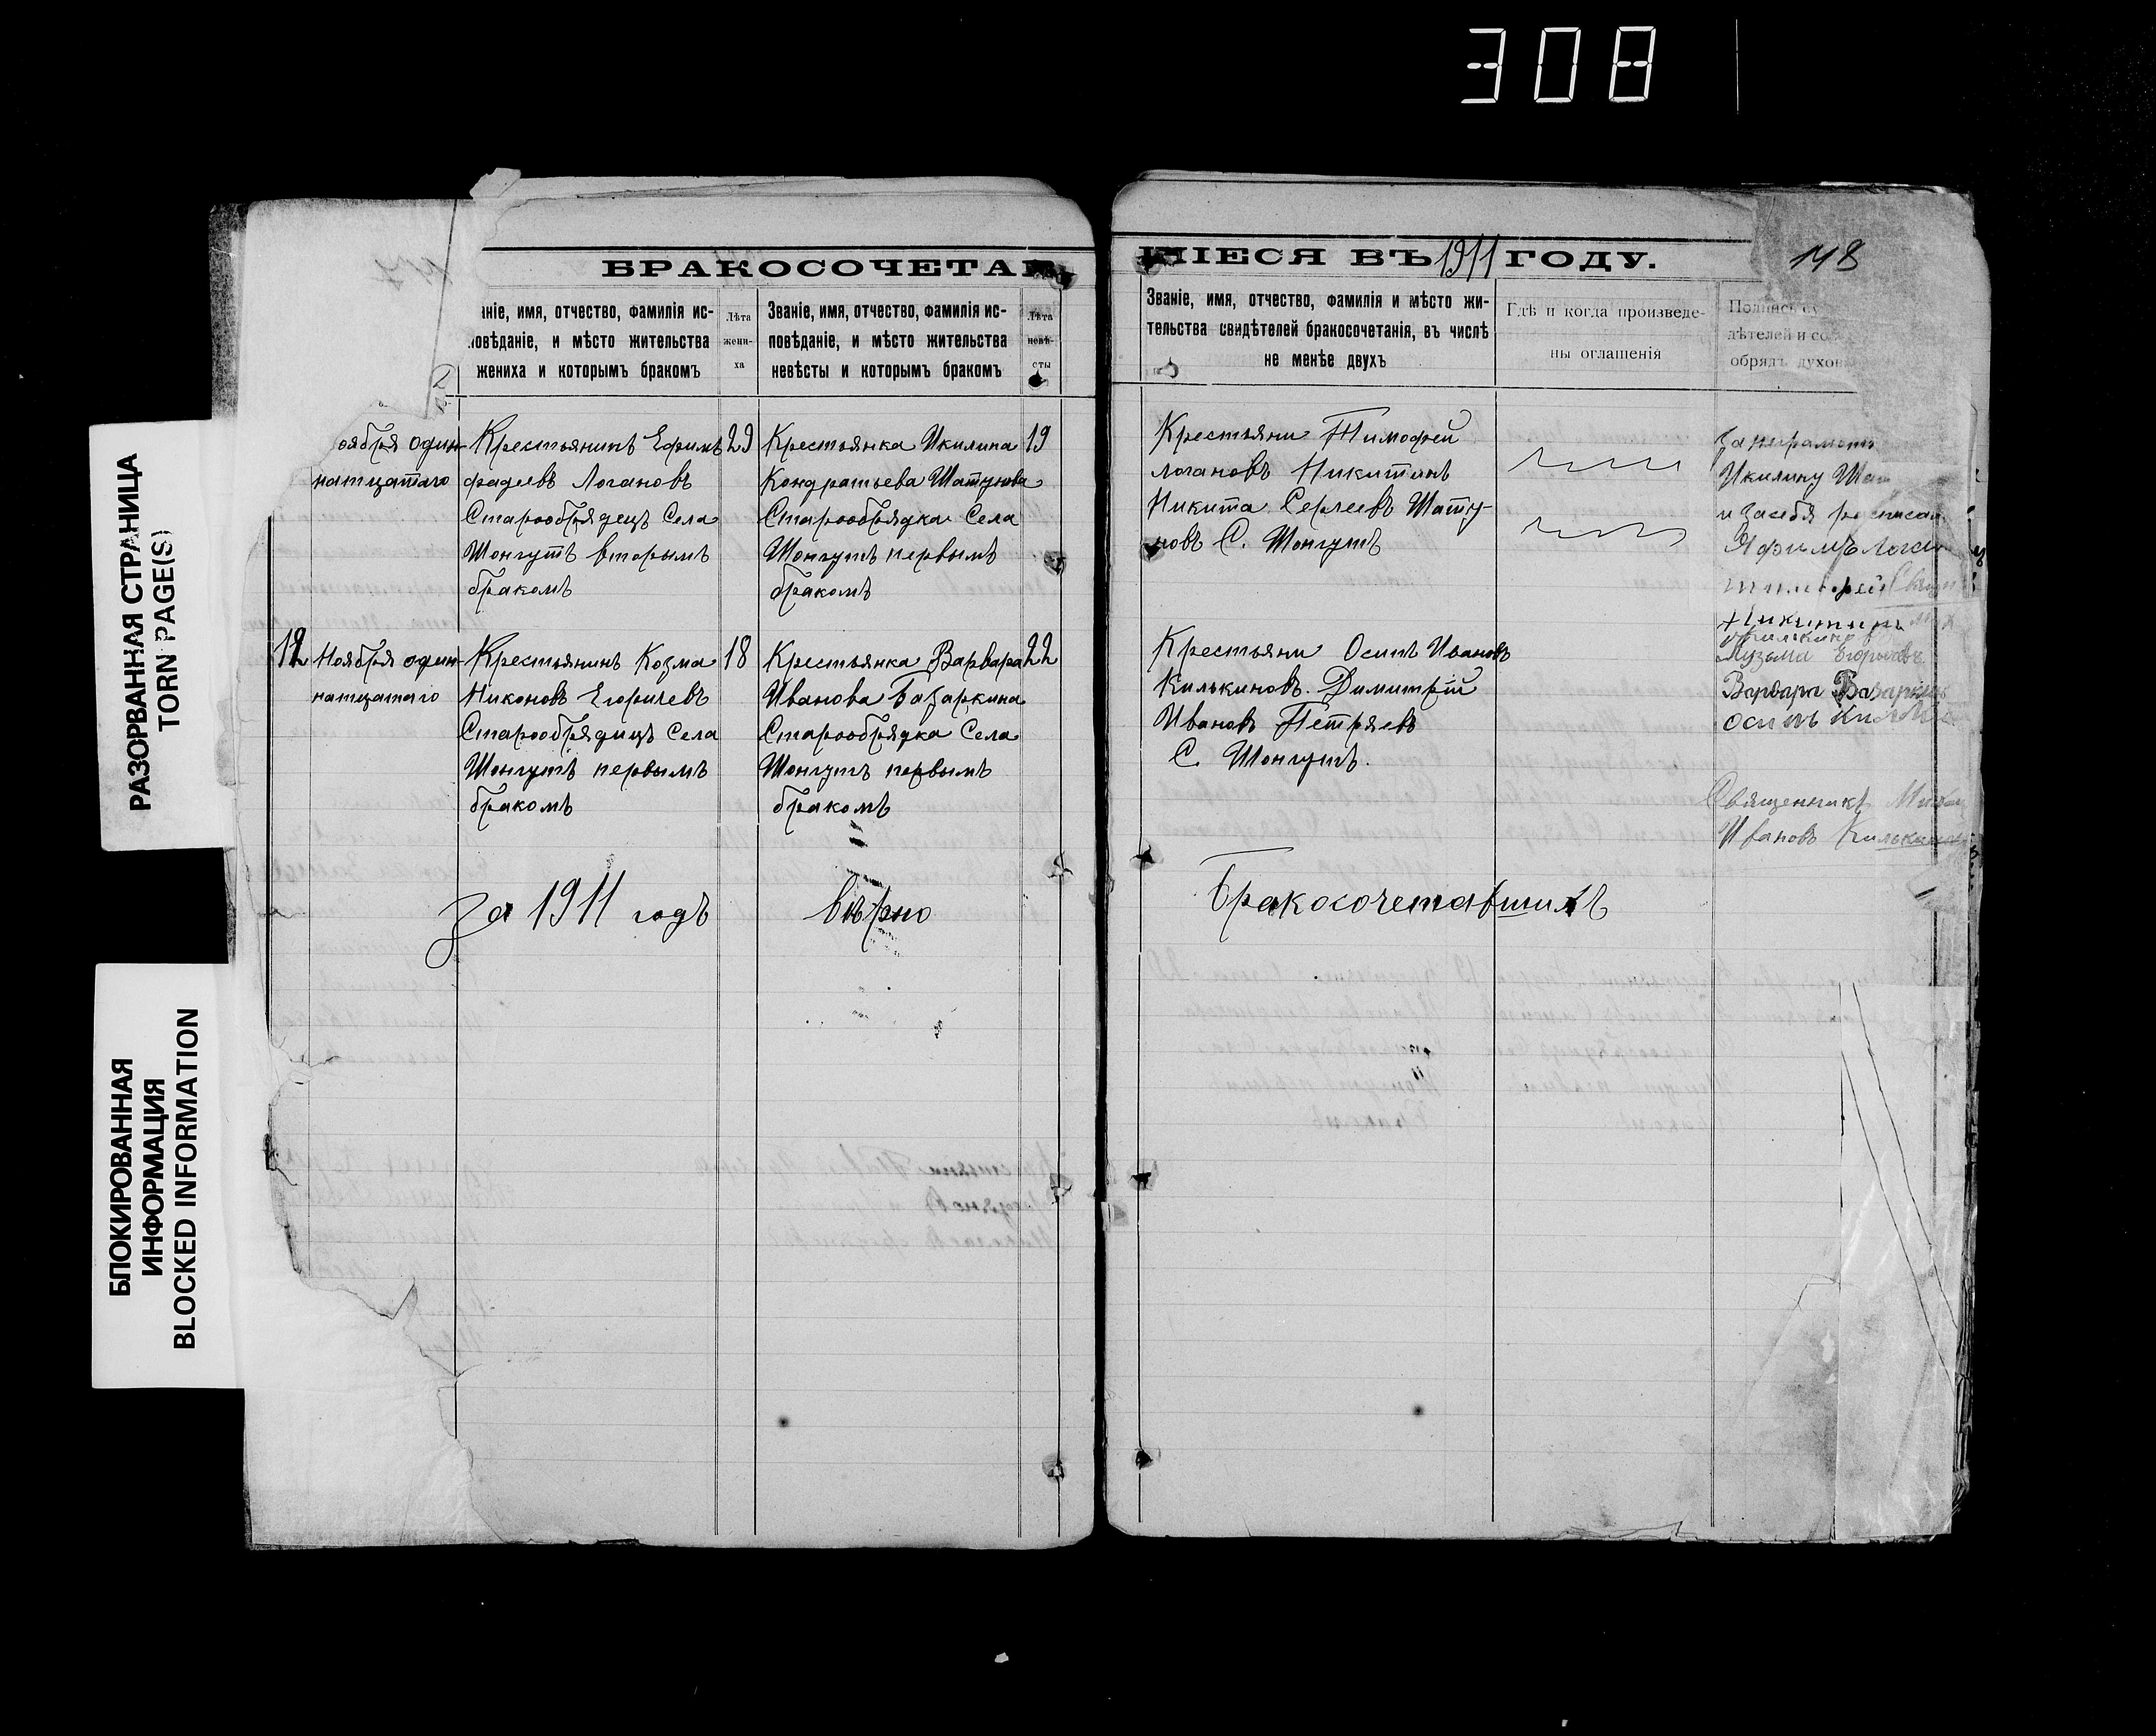 308
148
БРАКОСОЧЕТАВ
ШІЕСЯ ВЪ 1911 ГОДУ.
ніе, имя, отчество, фамилія ис-
повѣданіе, и мѣсто жительства
жениха и которымъ бракомъ
Лѣта
жени-
ха
Званіе, имя, отчество, фамилія ис-
повѣданіе, и мѣсто жительства
невѣсты и которымъ бракомъ
Лѣта
невѣ-
сты
Званіе, имя, отчество, фамилія и мѣсто жи-
тельства свидѣтелей бракосочетанія, въ числѣ
не менѣе двухъ
Гдѣ и когда произведе-
ны оглашенія
Подпись
дѣтелей и
обрядъ духов
оября один
натцатаго
Крестьянинъ Ефимъ
фадеевъ Логановъ
Старообрядецъ Села
Шонгутъ вторымъ
бракомъ
29
Крестьянка Икилина
Кондратьева Шатунова
Старообрядка Села
Шонгутъ первымъ
бракомъ
19
Крестьяни Тимофей
логановъ Никитинъ
Никита Сергеевъ Шату-
новъ С. Шонгутъ
Икилину
и засебя
12
Ноября один
натцатаго
Крестьянинъ Козма
Никоновъ Егоричевъ
Старообрядицъ Села
Шонгутъ первымъ
бракомъ
18
Крестьянка Варвара
Иванова Базаркина
Старообрядка Села
Шонгутъ первымъ
бракомъ
22
Крестьяни Осипъ Ивановъ
Килькиновъ. Димитрій
Ивановъ Петряевъ
С. Шонгутъ.
Варвара
осипъ
Священникъ
Ивановъ
За 1911 годъ вѣрно
Бракосочетавшихъ
РАЗОРВАННАЯ СТРАНИЦА
TORN PAGE(S)
БЛОКИРОВАННАЯ
ИНФОРМАЦИЯ
BLOCKED INFORMATION